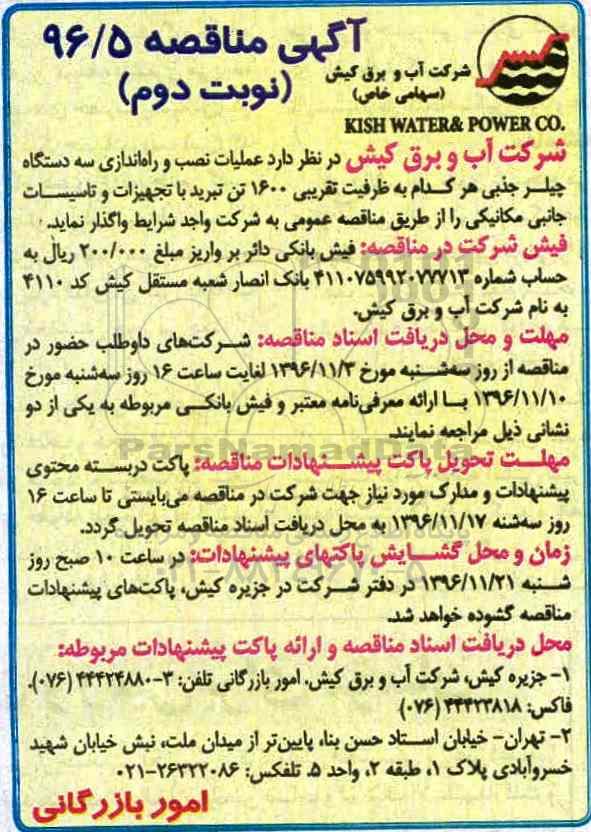 آگهی مناقصه ۹۶/۵
(نوبت دوم)
شرکت آب و برق کیش
(سهامی خاص)
KISH WATER& POWER CO.
شرکت آب و برق کیش در نظر دارد عملیات نصب و راه‌اندازی سه دستگاه
چیلر جذبی هر کدام به ظرفیت تقریبی ۱۶۰۰ تن تبرید با تجهیزات و تاسیسات
جانبی مکانیکی را از طریق مناقصه عمومی به شرکت واجد شرایط واگذار نماید.
فیش شرکت در مناقصه: فیش بانکی دائر بر واریز مبلغ ۲۰۰/۰۰۰ ریال به
حساب شماره ۴۱۱۰۷۵۹۹۲۰۷۷۷۱۳ بانک انصار شعبه مستقل کیش کد ۴۱۱۰
به نام شرکت آب و برق کیش.
مهلت و محل دریافت اسناد مناقصه: شرکت‌های داوطلب حضور در
مناقصه از روز سه‌شنبه مورخ ۱۳۹۶/۱۱/۳ لغایت ساعت ۱۶ روز سه‌شنبه مورخ
۱۳۹۶/۱۱/۱۰ با ارائه معرفی‌نامه معتبر و فیش بانکی مربوطه به یکی از دو
نشانی ذیل مراجعه نمایند.
ParsNamadData
مهلت تحویل پاکت پیشنهادات مناقصه: پاکت دربسته محتوی
پیشنهادات و مدارک مورد نیاز جهت شرکت در مناقصه می‌بایستی تا ساعت ۱۶
روز سه‌شنبه ۱۳۹۶/۱۱/۱۷ به محل دریافت اسناد مناقصه تحویل گردد.
زمان و محل گشایش پاکتهای پیشنهادات: در ساعت ۱۰ صبح روز
شنبه ۱۳۹۶/۱۱/۲۱ در دفتر شرکت در جزیره کیش، پاکت‌های پیشنهادات
مناقصه گشوده خواهد شد.
محل دریافت اسناد مناقصه و ارائه پاکت پیشنهادات مربوطه:
۱- جزیره کیش، شرکت آب و برق کیش. امور بازرگانی تلفن: ۳-۴۴۴۲۴۸۸۰ (۰۷۶).
فاکس: ۴۴۴۲۳۸۱۸ (۰۷۶)
۲- تهران- خیابان استاد حسن بنا، پایین‌تر از میدان ملت، نبش خیابان شهید
خسروآبادی پلاک ۱، طبقه ۲، واحد ۵. تلفکس: ۲۶۳۲۲۰۸۶-۰۲۱
امور بازرگانی